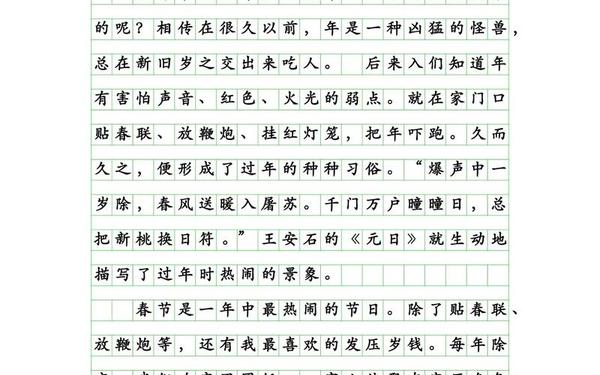 的呢？相传在很久以前，年是一种凶猛的怪兽，
总在新旧岁之交出来吃人。 后来人们知道年
有害怕声音、红色、火光的弱点。就在家门口
贴春联、放鞭炮、挂红灯笼，把年吓跑。久而
久之，便形成了过年的种种习俗。“爆声中一
岁除，春风送暖入屠苏。千门万户曈曈日，总
把新桃换日符。” 王安石的《元日》就生动地
描写了过年时热闹的景象。
春节是一年中最热闹的节日。除了贴春联、
放鞭炮等，还有我最喜欢的发压岁钱。每年除